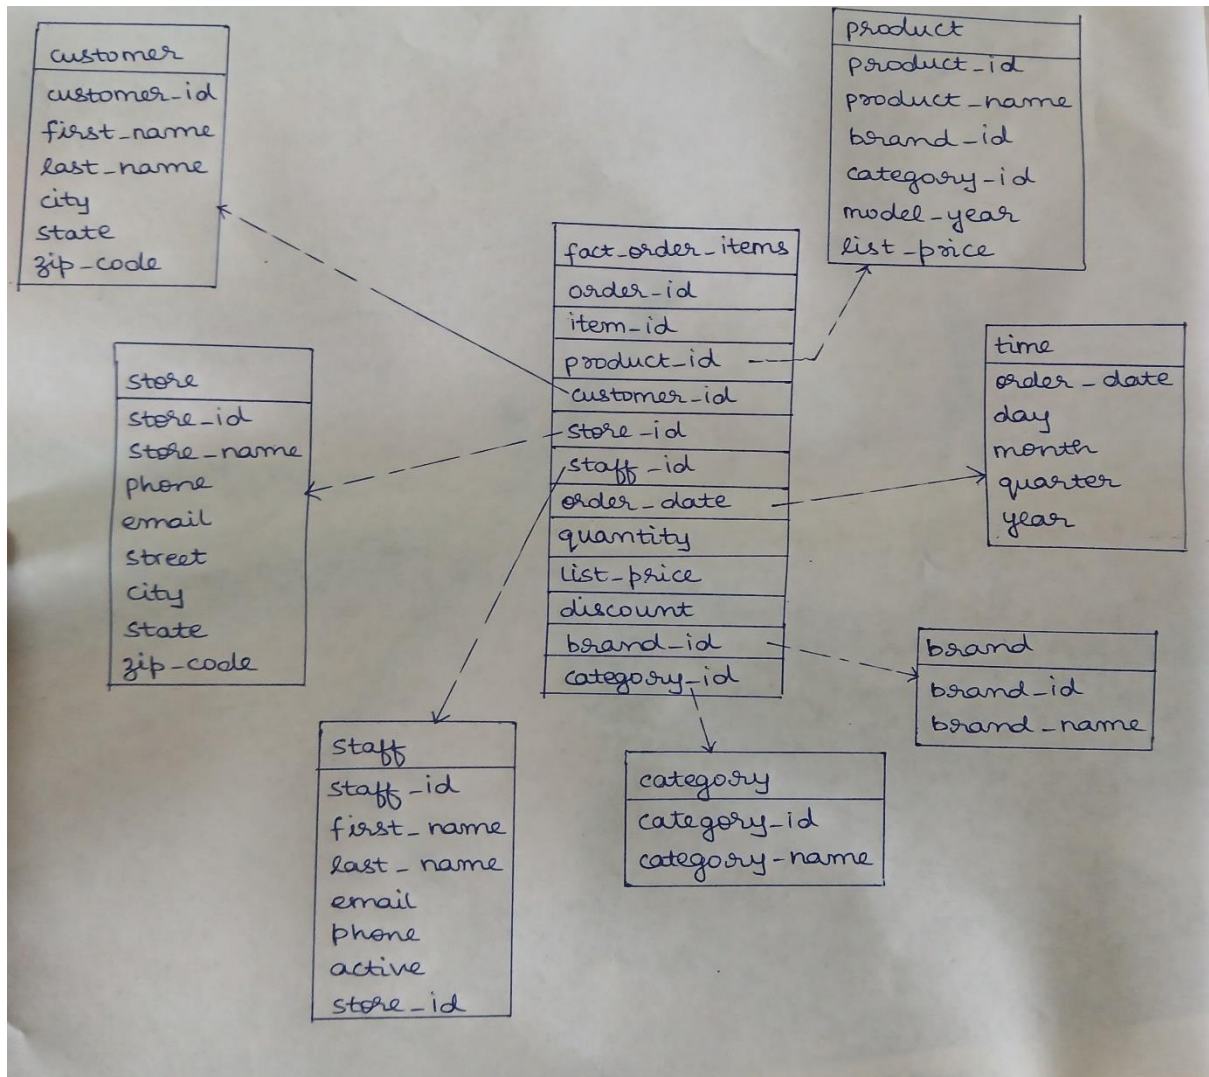 customer
customer_id
first_name
last_name
city
state
zip_code
product
product_id
product_name
brand_id
category_id
model_year
list_price
fact_order_items
order_id
item_id
product_id
customer_id
store_id
staff_id
order_date
quantity
list_price
discount
brand_id
category_id
store
store_id
store_name
phone
email
street
city
state
zip_code
time
order_date
day
month
quarter
year
brand
brand_id
brand_name
staff
staff_id
first_name
last_name
email
phone
active
store_id
category
category_id
category_name